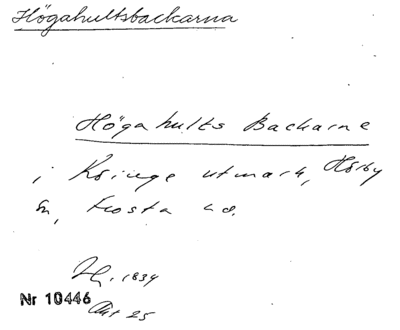 Högahultsbackarna
Högahults Backarne
i Kringe utmark, Hörby
Sn, Frosta hd.
1834
Nr 10446
Akt 25